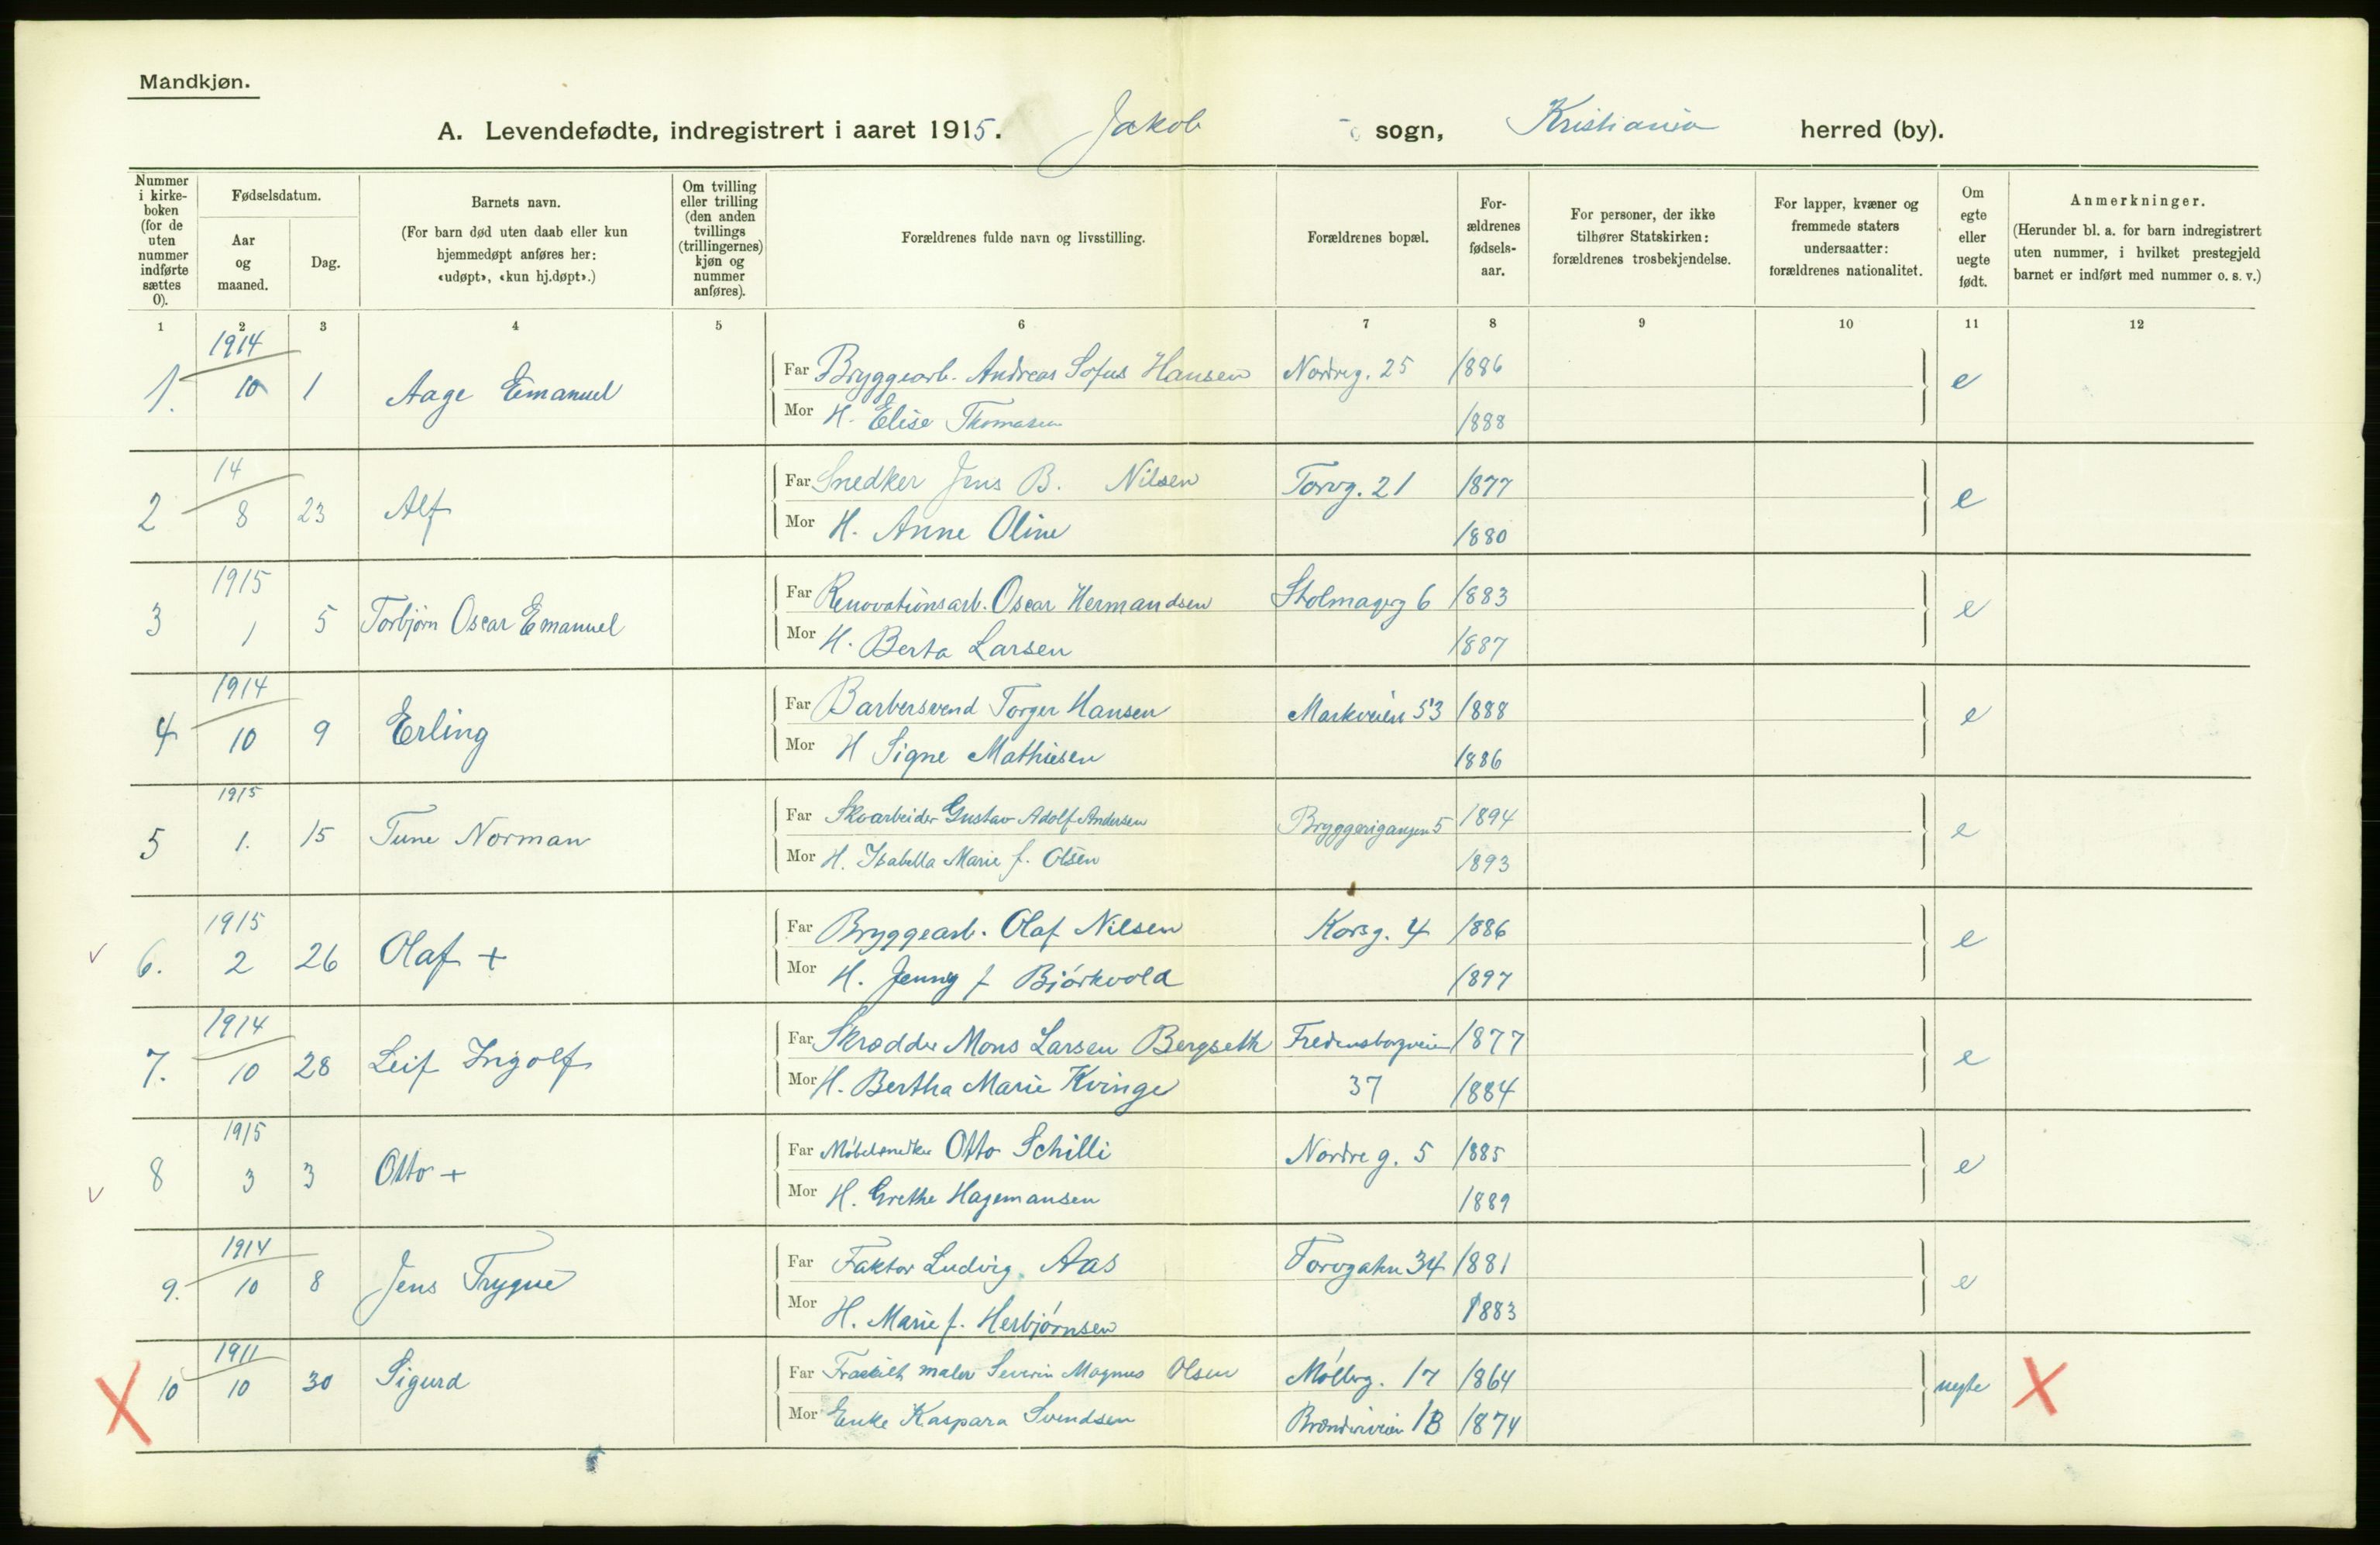 Mandkjøn.
A. Levendefødte, indregistrert i aaret 1915. Jakob sogn, Kristiania herred (by).
Nummer i kirke-boken (for de uten nummer indførte sættes 0).
Fødselsdatum.
Aar og maaned.
Dag.
Barnets navn.
(For barn død uten daab eller kun hjemmedøpt anføres her: «udøpt», «kun hj.døpt».)
Om tvilling eller trilling (den anden tvillings (trillingernes) kjøn og nummer anføres).
Forældrenes fulde navn og livsstilling.
Forældrenes bopæl.
For-ældrenes fødsels-aar.
For personer, der ikke tilhører Statskirken: forældrenes trosbekjendelse.
For lapper, kvæner og fremmede staters undersaatter: forældrenes nationalitet.
Om egte eller uegte født.
Anmerkninger.
(Herunder bl. a. for barn indregistrert uten nummer, i hvilket prestegjeld barnet er indført med nummer o. s. v.)
1 2 3 4 5 6 7 8 9 10 11 12
1914
1. 10 1 Aage Emanuel Far Bryggearb. Andreas Sofus Hansen Nordreg. 25 1886 e
Mor H. Elise Thomasen 1888
14
2 8 23 Alf Far Snedker Jens B. Nilsen Torvg. 21 1877 e
Mor H. Anne Oline 1880
1915
3 1 5 Torbjørn Oscar Emanuel Far Renovationsarb. Oscar Hermandsen Stolmagerg 6 1883 e
Mor H. Berta Larsen 1887
1914
4 10 9 Erling Far Barbersvend Torger Hansen Markveien 53 1888 e
Mor H Signe Mathiesen 1886
1915
5 1. 15 Tune Norman Far Skoarbeider Gustav Adolf Andersen Bryggerigangen 5 1894 e
Mor H. Isabella Marie f. Olsen 1893
1915
v 6. 2 26 Olaf + Far Bryggearb. Olaf Nilsen Korsg. 4 1886 e
Mor H. Jenny f Bjørkvold 1897
1914
7. 10 28 Leif Ingolf Far Skrædder Mons Larsen Bergseth Fredensborgveien 1877 e
Mor H. Bertha Marie Kvinge 37 1884
1915
v 8 3 3 Otto + Far Møbelsnedker Otto Schilli Nordre g. 5 1885 e
Mor H. Grethe Hagemansen 1889
1914
9. 10 8 Jens Trygve Far Faktor Ludvig Aas Torvgaten 34 1881 e
Mor H. Marie f. Herbjørnsen 1883
1911
X 10 10 30 Sigurd Far maler Severin Magnus Olsen Møllerg. 17 1864 uegte X
Mor Enke Kaspara Svendsen 1B 1874